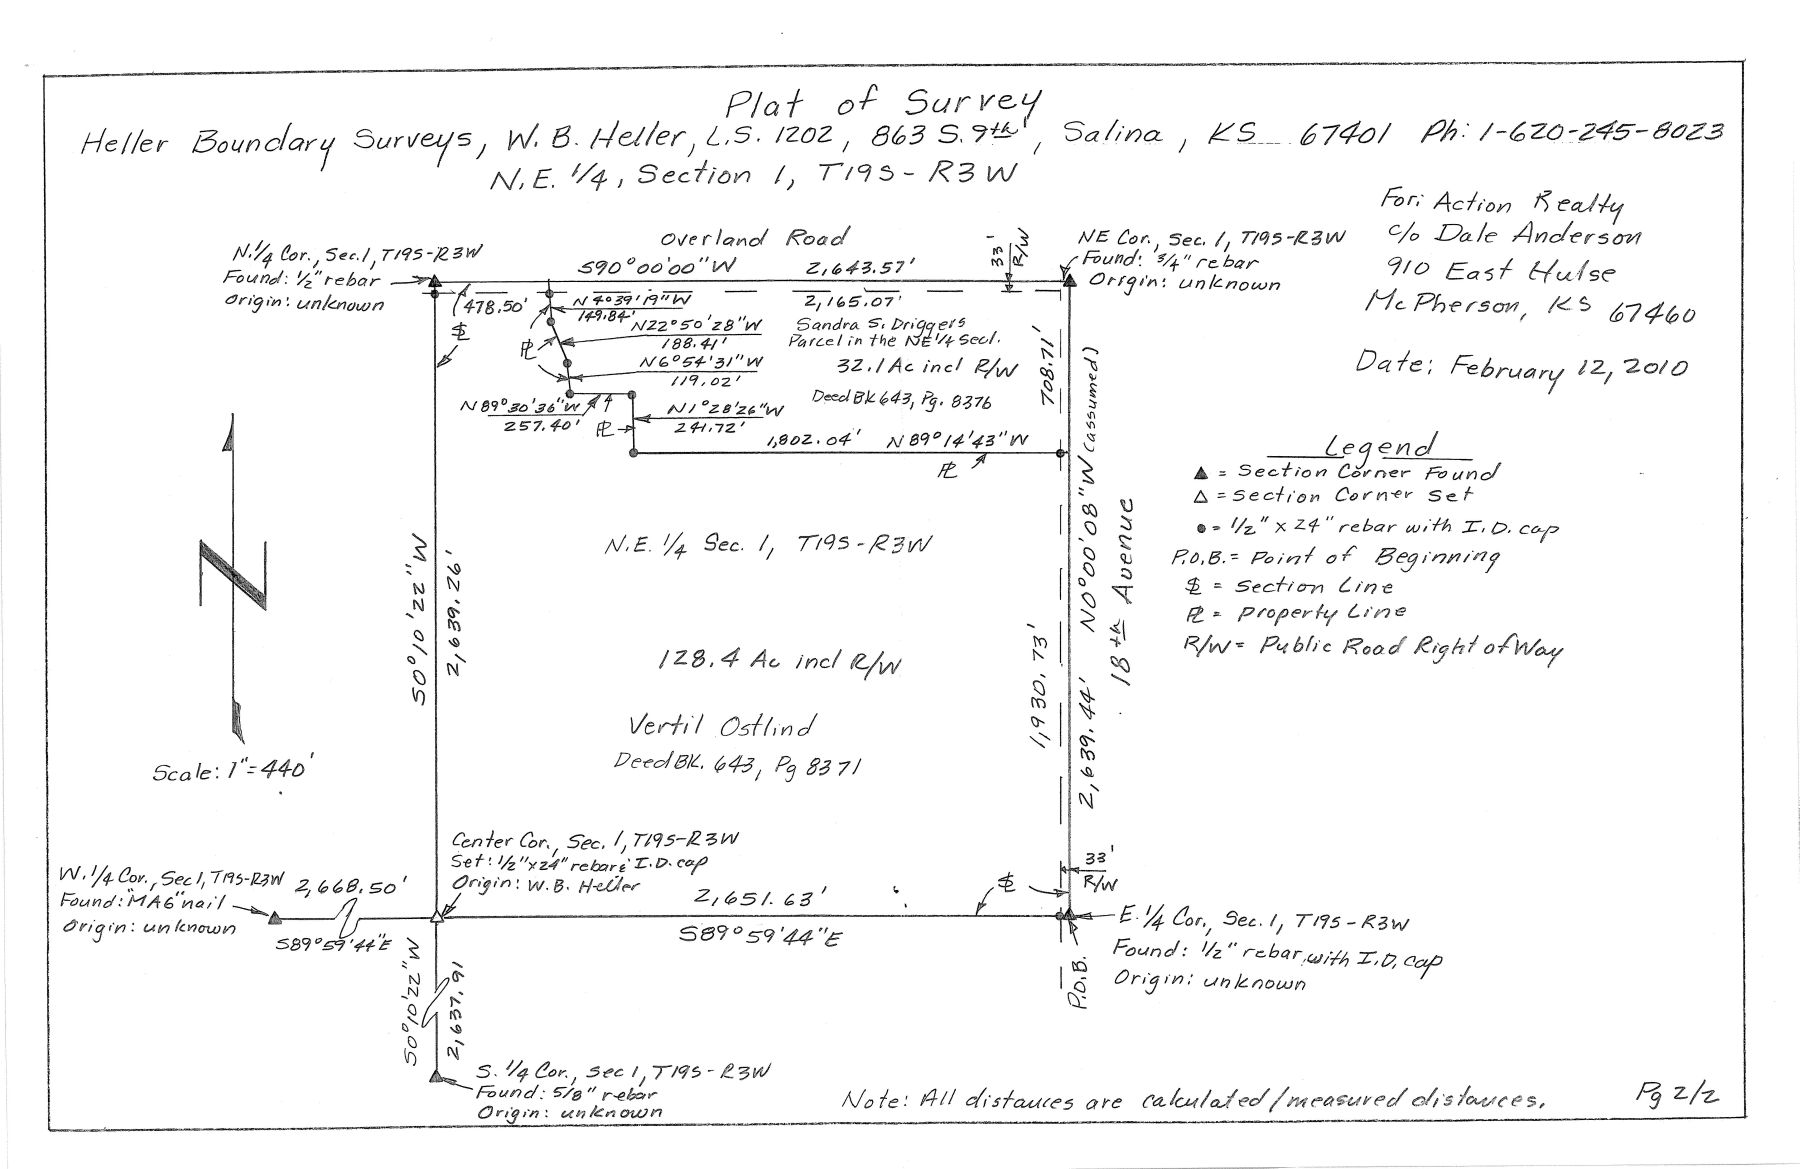 Plat of Survey
Heller Boundary Surveys, W. B. Heller, L.S. 1202, 863 S. 9th, Salina, KS 67401 Ph: 1-620-245-8023
N.E. 1/4, Section 1, T19S-R3W
For: Action Realty
c/o Dale Anderson
910 East Hulse
McPherson, KS 67460
Date: February 12, 2010
N.1/4 Cor., Sec.1, T19S-R3W
Found: 1/2" rebar
Origin: unknown
Overland Road
S90°00'00"W 2,643.57'
33'
R/W
NE Cor., Sec. 1, T19S-R3W
Found: 3/4" rebar
Origin: unknown
478.50'
2,165.07'
N4°39'19"W
149.84'
N22°50'28"W
188.41'
N6°54'31"W
119.02'
N89°30'36"W
257.40'
N1°28'26"W
241.72'
1,802.04' N89°14'43"W
SL
PL
PL
PL
Sandra S. Driggers
Parcel in the NE 1/4 Sec1.
32.1 Ac incl R/W
Deed Bk 643, Pg. 8376
708.71'
N0°00'08"W (assumed)
2,639.44'
18th Avenue
1,930.73'
Legend
▲ = Section Corner Found
△ = Section Corner Set
● = 1/2" x 24" rebar with I.D. cap
P.O.B. = Point of Beginning
SL = Section Line
PL = Property Line
R/W = Public Road Right of Way
N
Scale: 1"=440'
S0°10'22"W
2,639.26'
N.E. 1/4 Sec. 1, T19S-R3W
128.4 Ac incl R/W
Vertil Ostlind
Deed BK. 643, Pg 8371
Center Cor., Sec. 1, T19S-R3W
Set: 1/2"x24" rebar & I.D. cap
Origin: W.B. Heller
W. 1/4 Cor., Sec 1, T19S-R3W
Found: "MAG" nail
Origin: unknown
2,668.50'
S89°59'44"E
2,651.63'
S89°59'44"E
SL
33'
R/W
E. 1/4 Cor., Sec. 1, T19S-R3W
Found: 1/2" rebar with I.D. cap
Origin: unknown
P.O.B.
S0°10'22"W
2,637.91
S. 1/4 Cor., Sec 1, T19S-R3W
Found: 5/8" rebar
Origin: unknown
Note: All distances are calculated/measured distances.
Pg 2/2